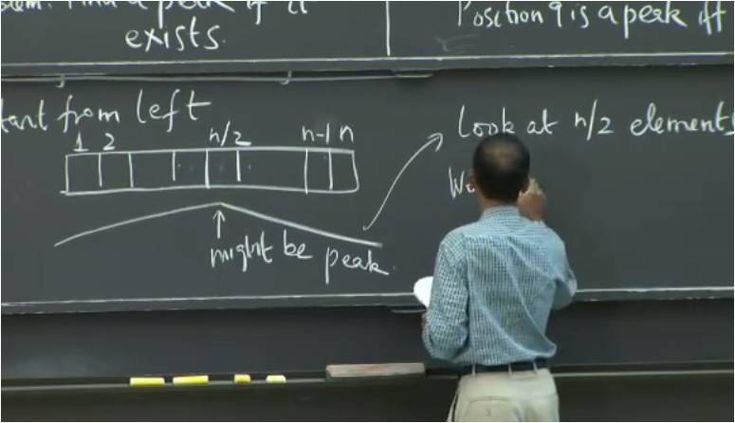 Find a peak if it
exists.
Position 9 is a peak iff
start from left
1 2 n/2 n-1 n
might be peak.
Look at n/2 elements